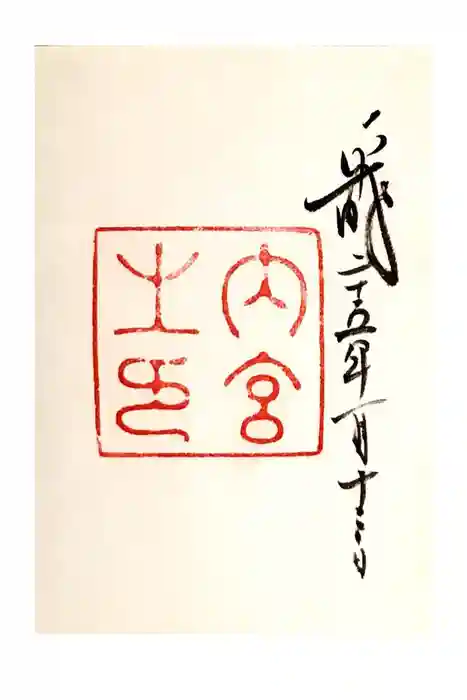 平成二十五年一月十三日
内宮
之印